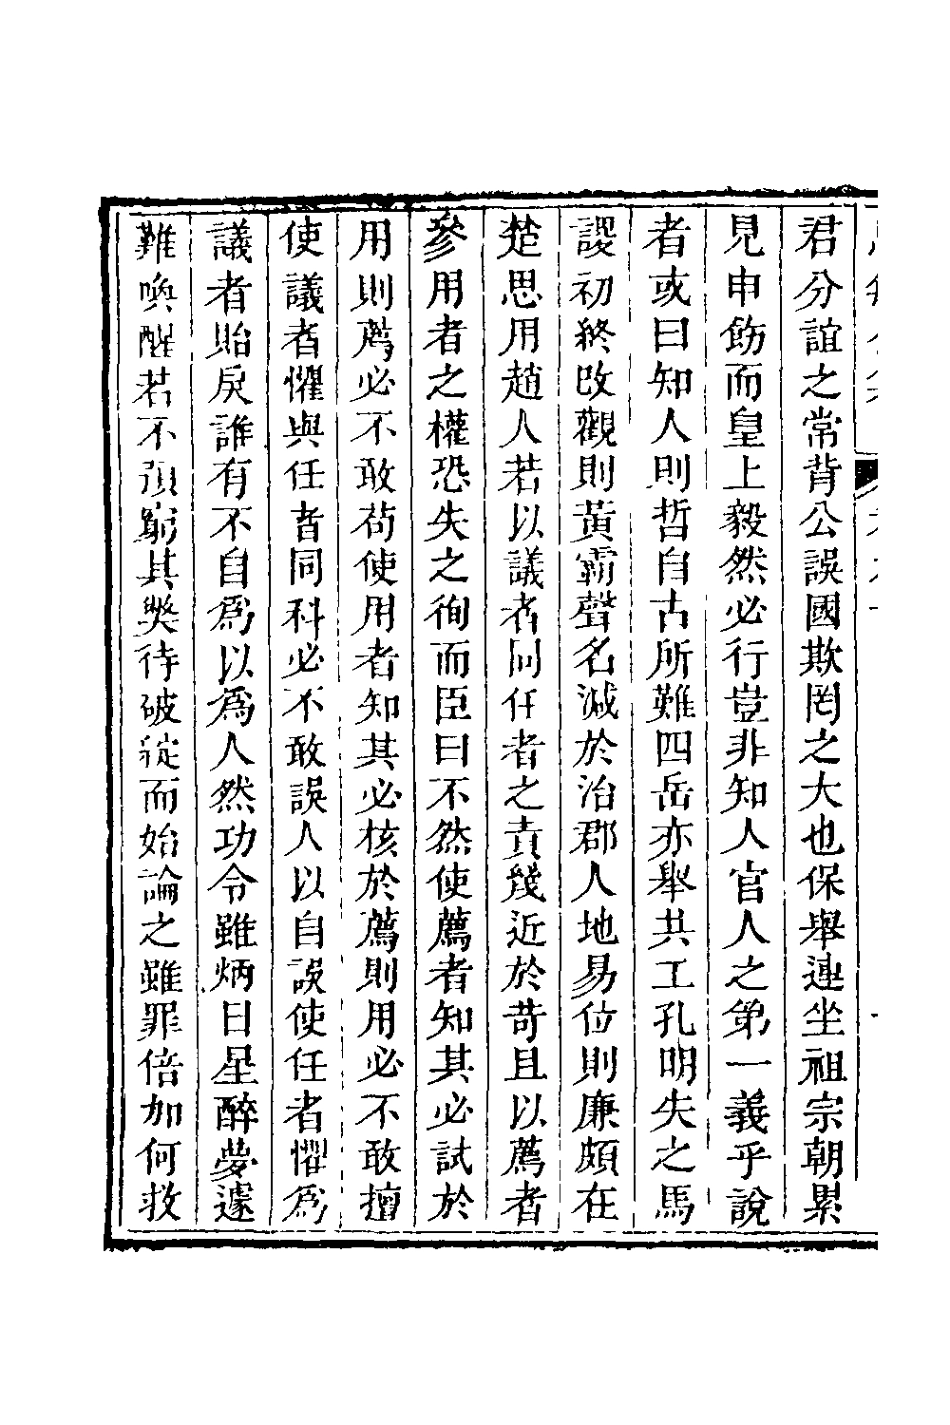 君分誼之常背公誤國欺罔之大也保舉連坐祖宗朝累
見申飭而皇上毅然必行豈非知人官人之第一義乎說
者或曰知人則哲自古所難四岳亦舉共工孔明失之馬
謖初終改觀則黃霸聲名減於治郡人地易位則廉頗在
楚思用趙人若以議者同任者之責幾近於苛且以薦者
參用者之權恐失之徇而臣曰不然使薦者知其必試於
用則薦必不敢苟使用者知其必核於薦則用必不敢擅
使議者懼與任者同科必不敢誤人以自誤使任者懼為
議者貽戾誰有不自為以為人然功令雖炳日星醉夢遽
難喚醒若不預窮其獘待破綻而始論之雖罪倍加何救